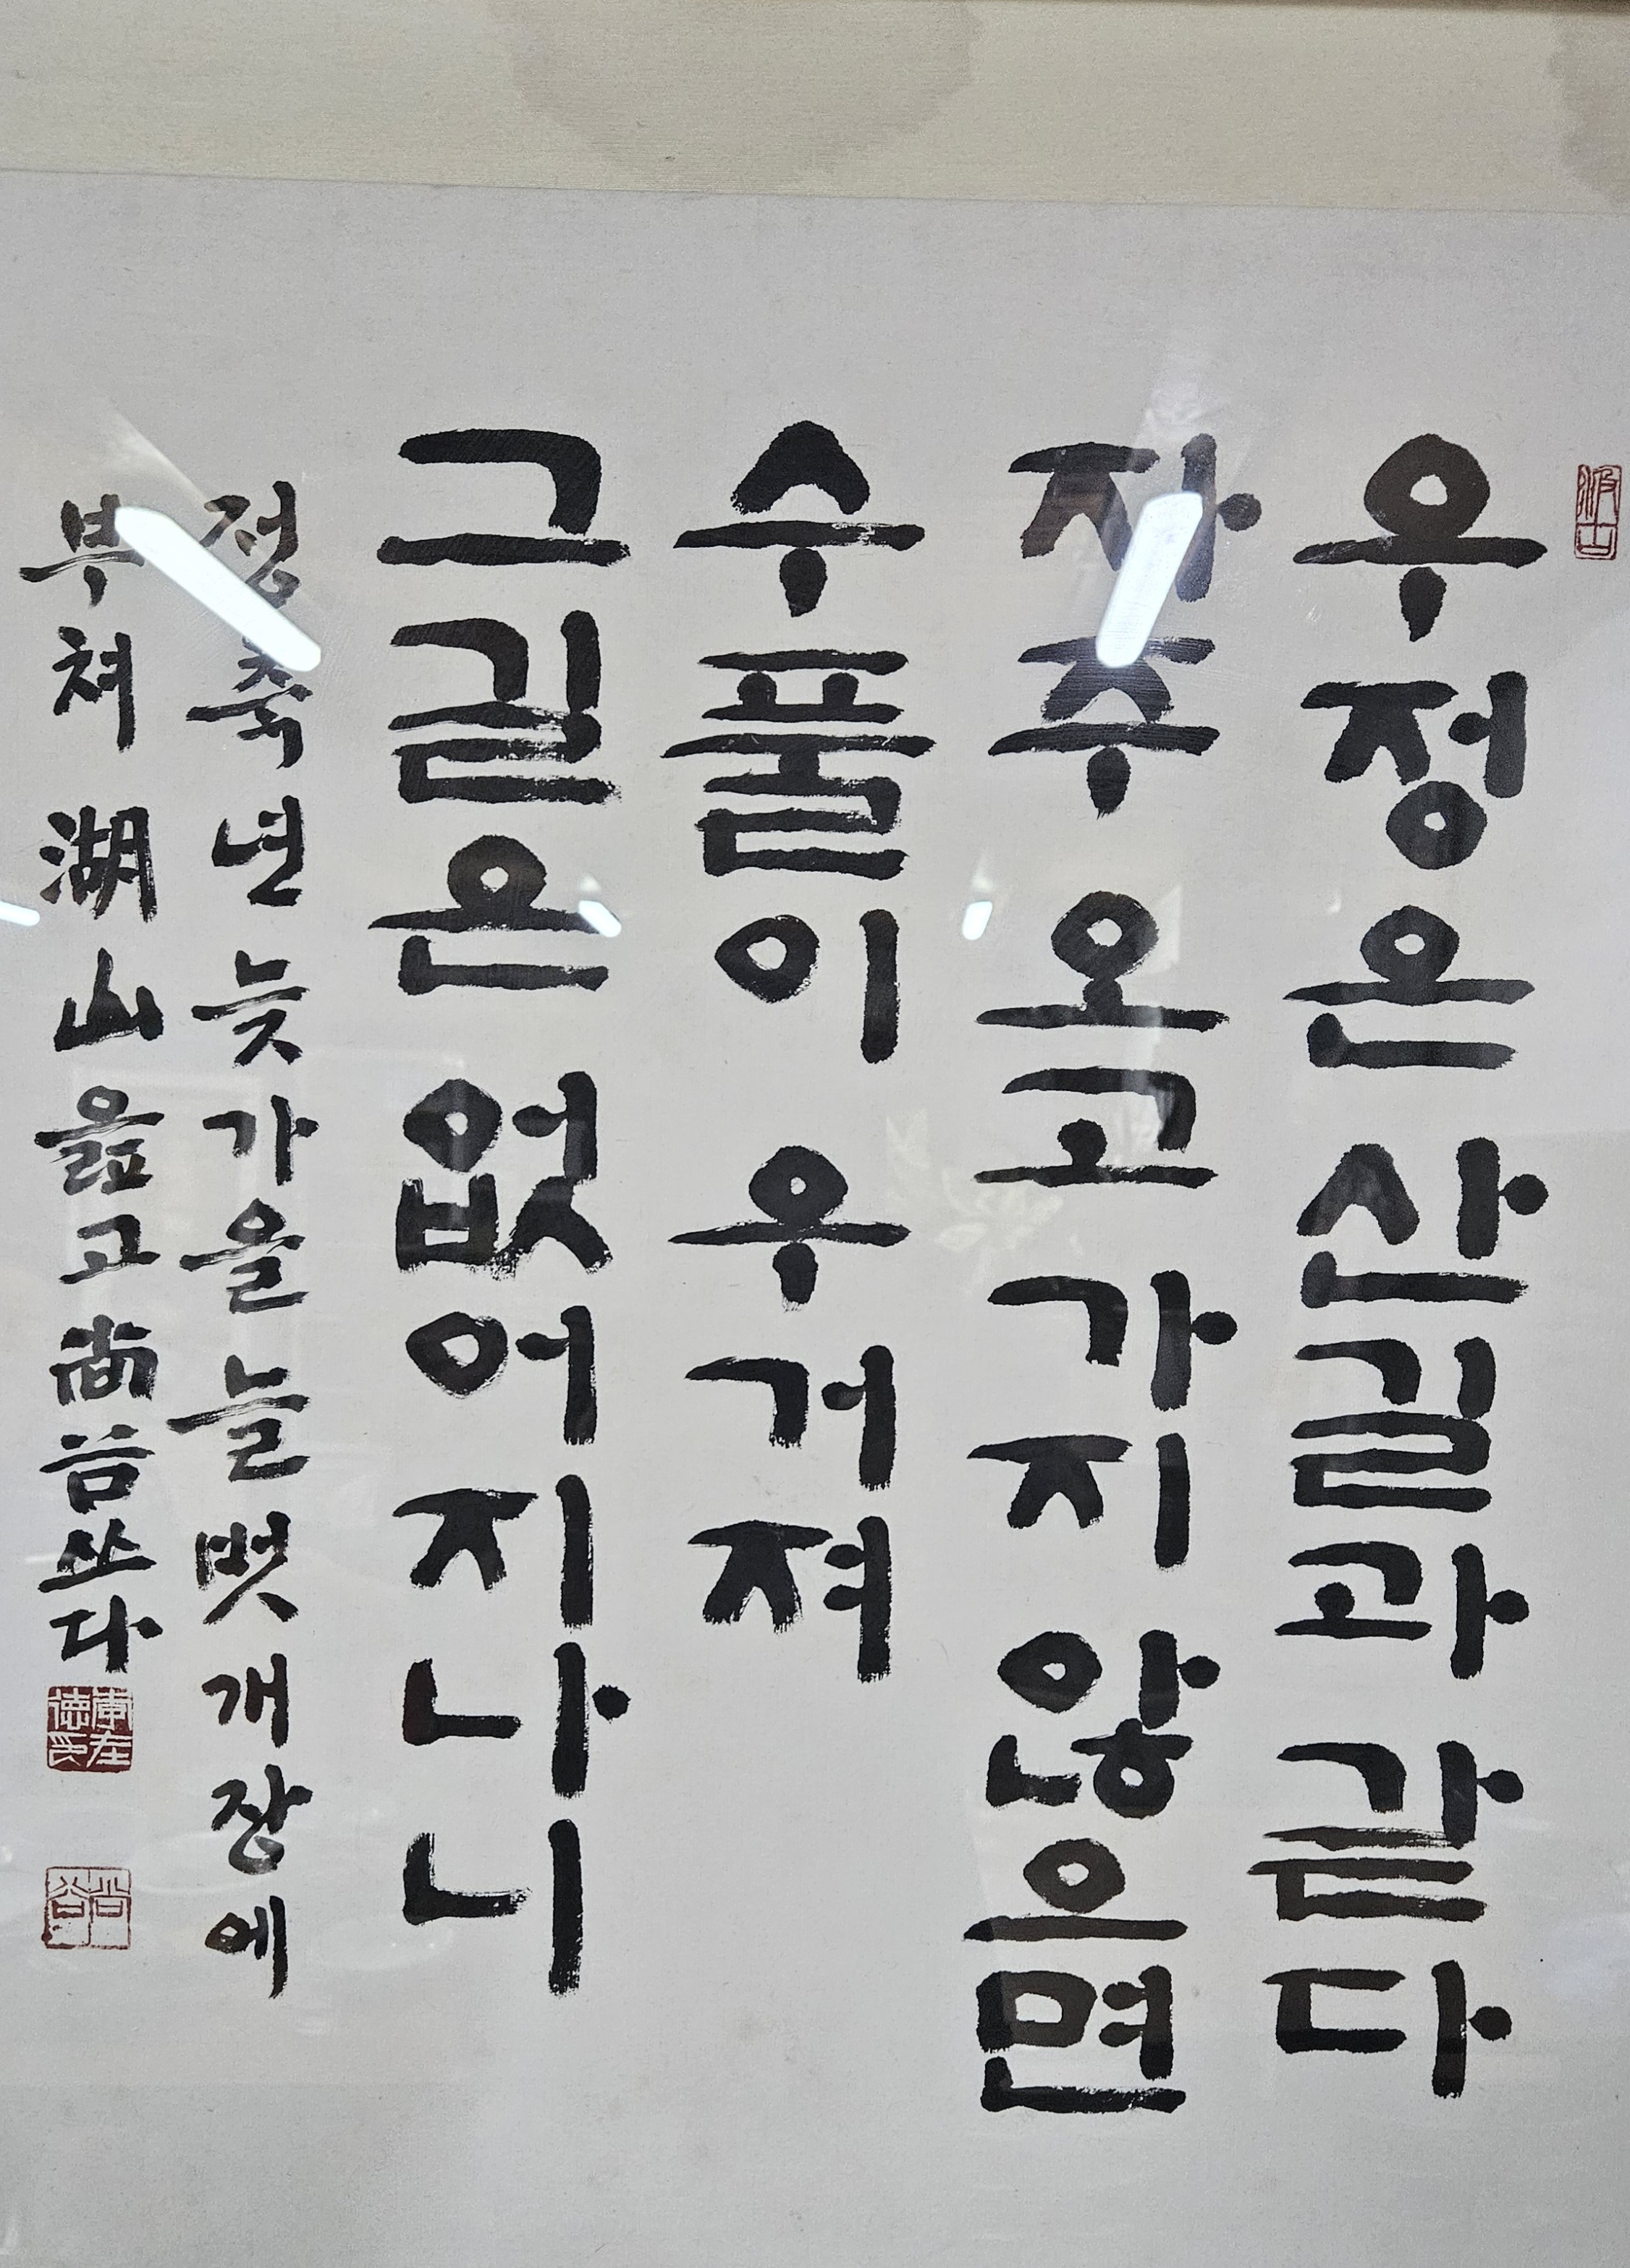 우정은 산길과 같다
자주 오고 가지 않으면
수풀이 우거져
그길은 없어지나니
정축년 늦가을 늘벗 개장에
부쳐 湖山 읊고 尚谷 쓰다